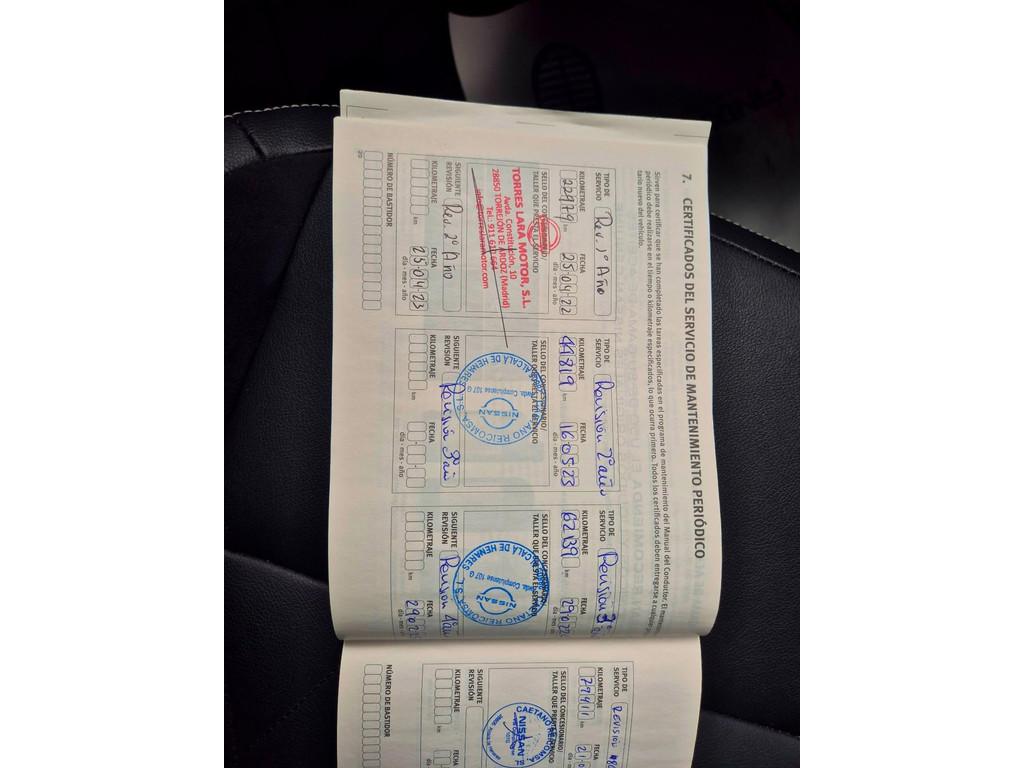 7. CERTIFICADOS DEL SERVICIO DE MANTENIMIENTO PERIÓDICO
Sirven para certificar que se han completado las tareas especificadas en el programa de mantenimiento del Manual del Conductor. El
periódico debe realizarse en el tiempo o kilometraje especificados, lo que ocurra primero. Todos los certificados deben entregarse a cualquier
tario nuevo del vehículo.
TIPO DE
SERVICIO Rev. 1º Año
KILOMETRAJE FECHA
22979 km 25 04 22
día - mes - año
SELLO DEL CONCESIONARIO/
TALLER QUE PRESTA EL SERVICIO
TORRES LARA MOTOR, S.L.
Avda. Constitución, 10
28850 TORREJÓN DE ARDOZ (Madrid)
Tel.: 911
info@torreslaramotor.com
SIGUIENTE
REVISIÓN Rev. 2º Año
KILOMETRAJE FECHA
km 25 04 23
día - mes - año
NÚMERO DE BASTIDOR
20
TIPO DE
SERVICIO Revisión 2º año
KILOMETRAJE FECHA
44819 km 16 05 23
día - mes - año
SELLO DEL CONCESIONARIO/
TALLER QUE PRESTA EL SERVICIO
CAETANO REICOMSA, S.L.
NISSAN
Avda. Complutense 107 G
ALCALÁ DE HENARES
SIGUIENTE
REVISIÓN Revisión 3º año
KILOMETRAJE FECHA
km
día - mes - año
TIPO DE
SERVICIO Revisión 3º
KILOMETRAJE FECHA
62139 km
día - mes - año
SELLO DEL CONCESIONARIO/
TALLER QUE PRESTA EL SERVICIO
CAETANO REICOMSA, S.L.
NISSAN
Avda. Complutense 107 G
ALCALÁ DE HENARES
SIGUIENTE
REVISIÓN Revisión 4º año
KILOMETRAJE FECHA
km
TIPO DE
SERVICIO REVISION
KILOMETRAJE
km
SELLO DEL CONCESIONARIO/
TALLER QUE PRESTA EL SERVICIO
CAETANO REICOMSA, SL
NISSAN
SIGUIENTE
REVISIÓN
KILOMETRAJE
km
NÚMERO DE BASTIDOR